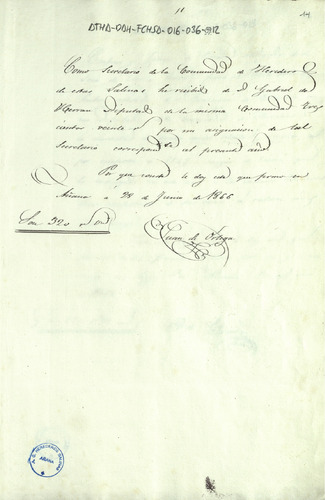 11
14
DTHA-DDH-FCHSA-016-036-
Como Secretario de la Comunidad de Herederos
de estas Salinas he recibido de D. Gabriel de
Herran Diputado de la misma Comunidad tres
cientos veinte rs por mi asignacion de tal
Secretario correspondte al presente año
Y para que conste le doy este que firmo en
Añana á 28 de Junio de 1866
Son 320 rs vn
Juan de Ortega
AÑANA